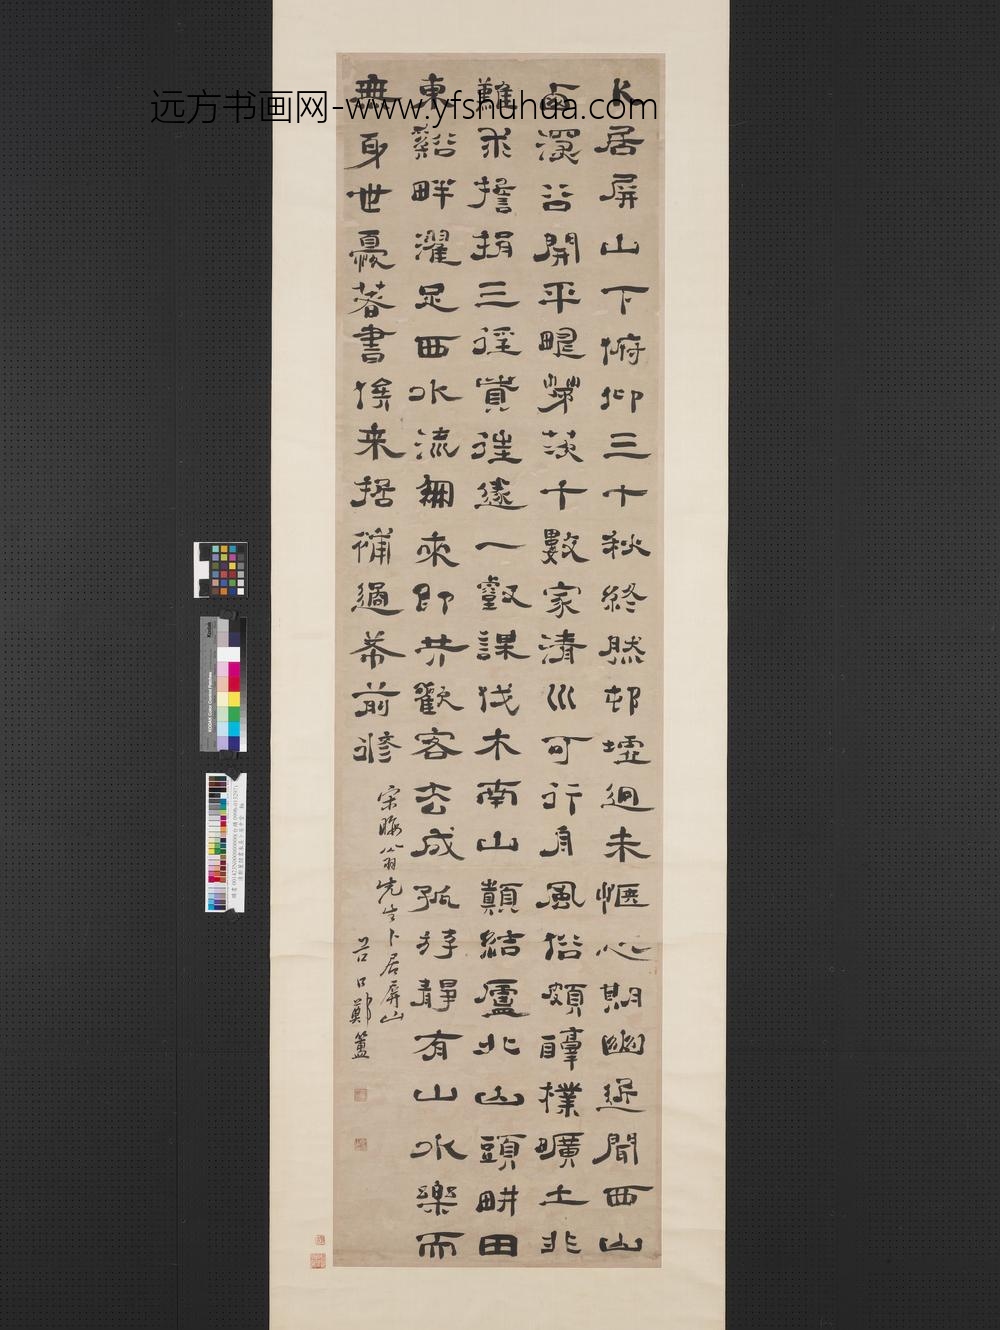 远方书画网-www.yfshuhua.com
卜居屏山下俯仰三十秋終然邨墟迥未愜心期幽近聞西山
西深谷開平疇茅茨十數家清川可行舟風俗頗醇樸曠土非
難求擔捐三徑貲往遂一壑謀伐木南山顛結廬北山頭畊田
東谿畔濯足西水流朋來即共歡客去成孤游靜有山水樂而
無身世憂著書俟来哲補過希前修
宋晦翁先生卜居屏山
谷口鄭簠